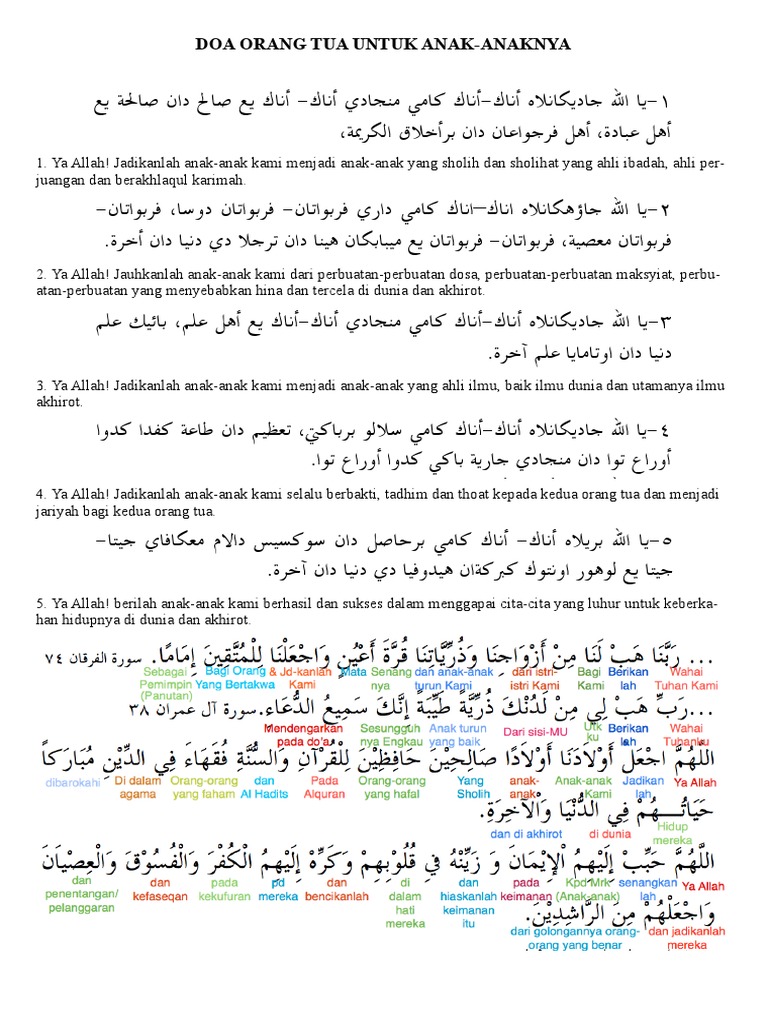 DOA ORANG TUA UNTUK ANAK-ANAKNYA
١-يا الله جاديكانلاه أناك-أناك كامي منجادي أناك- أناك يع صالح دان صالحة يع
أهل عبادة، أهل فرجواعان دان برأخلاق الكريمة،
1. Ya Allah! Jadikanlah anak-anak kami menjadi anak-anak yang sholih dan sholihat yang ahli ibadah, ahli per-
juangan dan berakhlaqul karimah.
٢-يا الله جاؤهكانلاه اناك-اناك كامي داري فربواتان- فربواتان دوسا، فربواتان-
فربواتان معصية، فربواتان- فربواتان يع ميبابكان هينا دان ترجلا دي دنيا دان أخرة.
2. Ya Allah! Jauhkanlah anak-anak kami dari perbuatan-perbuatan dosa, perbuatan-perbuatan maksyiat, perbu-
atan-perbuatan yang menyebabkan hina dan tercela di dunia dan akhirot.
٣-يا الله جاديكانلاه أناك-أناك كامي منجادي أناك-أناك يع أهل علم، بائيك علم
دنيا دان اوتامايا علم آخرة.
3. Ya Allah! Jadikanlah anak-anak kami menjadi anak-anak yang ahli ilmu, baik ilmu dunia dan utamanya ilmu
akhirot.
٤-يا الله جاديكانلاه أناك-أناك كامي سلالو برباكتي، تعظيم دان طاعة كفدا كدوا
أوراع توا دان منجادي جارية باكي كدوا أوراع توا.
4. Ya Allah! Jadikanlah anak-anak kami selalu berbakti, tadhim dan thoat kepada kedua orang tua dan menjadi
jariyah bagi kedua orang tua.
٥-يا الله بريلاه أناك- أناك كامي برحاصل دان سوكسيس دالام معكافاي جيتا-
جيتا يع لوهور اونتوك كبركةان هيدوفيا دي دنيا دان آخرة.
5. Ya Allah! berilah anak-anak kami berhasil dan sukses dalam menggapai cita-cita yang luhur untuk keberka-
han hidupnya di dunia dan akhirot.
... رَبَّنَا هَبْ لَنَا مِنْ أَزْوَاجِنَا وَذُرِّيَّاتِنَا قُرَّةَ أَعْيُنٍ وَاجْعَلْنَا لِلْمُتَّقِينَ إِمَامًا. سورة الفرقان ٧٤
Wahai Tuhan Kami Berikan lah Bagi Kami dari istri-istri Kami dan anak-anak turun Kami Senang nya Mata & Jd-kanlah Kami Bagi Orang Yang Bertakwa Sebagai Pemimpin (Panutan)
...رَبِّ هَبْ لِي مِنْ لَدُنْكَ ذُرِّيَّةً طَيِّبَةً إِنَّكَ سَمِيعُ الدُّعَاءِ. سورة آل عمران ٣٨
Wahai Tuhanku Berikan lah Utk ku Dari sisi-MU Anak turun yang baik Sesungguh nya Engkau Mendengarkan pada do'a
اللَّهُمَّ اجْعَلْ أَوْلَادَنَا أَوْلَادًا صَالِحِيْنَ حَافِظِيْنَ لِلْقُرْآنِ وَالسُّنَّةِ فُقَهَاءَ فِي الدِّيْنِ مُبَارَكاً
Ya Allah Jadikan lah Anak-anak Kami anak-anak Yang Sholih Orang-orang yang hafal Pada Alquran dan Al Hadits Orang-orang yang faham Di dalam agama dibarokahi
حَيَاتُـــهُمْ فِي الدُّنْيَا وَالْآخِرَةِ.
Hidup mereka di dunia dan di akhirot
اللَّهُمَّ حَبِّبْ إِلَيْهِمُ الْإِيْمَانَ وَ زَيِّنْهُ فِي قُلُوْبِهِمْ وَكَرِّهْ إِلَيْهِمُ الْكُفْرَ وَالْفُسُوْقَ وَالْعِصْيَانَ
Ya Allah senangkan lah Kpd Mrk (Anak-anak) pada keimanan dan hiaskanlah keimanan itu di dalam hati mereka dan bencikanlah pd mereka pada kekufuran dan kefaseqan dan penentangan/ pelanggaran
وَاجْعَلْهُمْ مِنَ الرَّاشِدِيْنَ.
dan jadikanlah mereka dari golongannya orang-orang yang benar